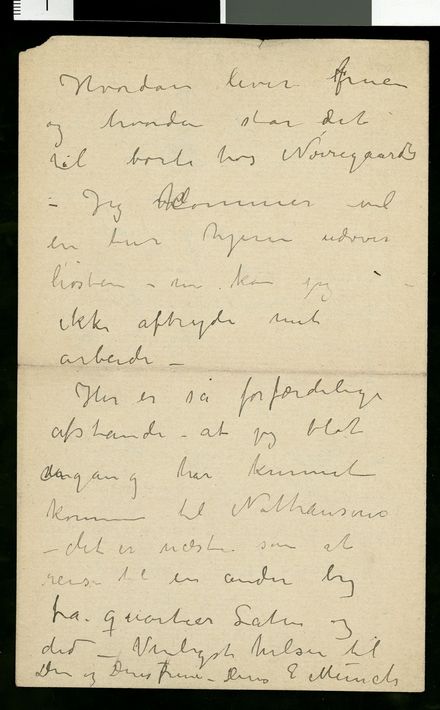 Hvordan lever fruen
og hvordan står det
til borte hos Nørregaards
– Jeg kommer vel
en tur hjem udover
høsten – nu kan jeg –
ikke afbryde mit
arbeide –
Her er så forfærdelige
afstande – at jeg blot
engang har kunnet
komme til Nathansons
– det er næsten som at
reise til en anden by
fra quartier Latin og
did – Venligst hilsen til
Dem og Deres frue – Deres E Munch